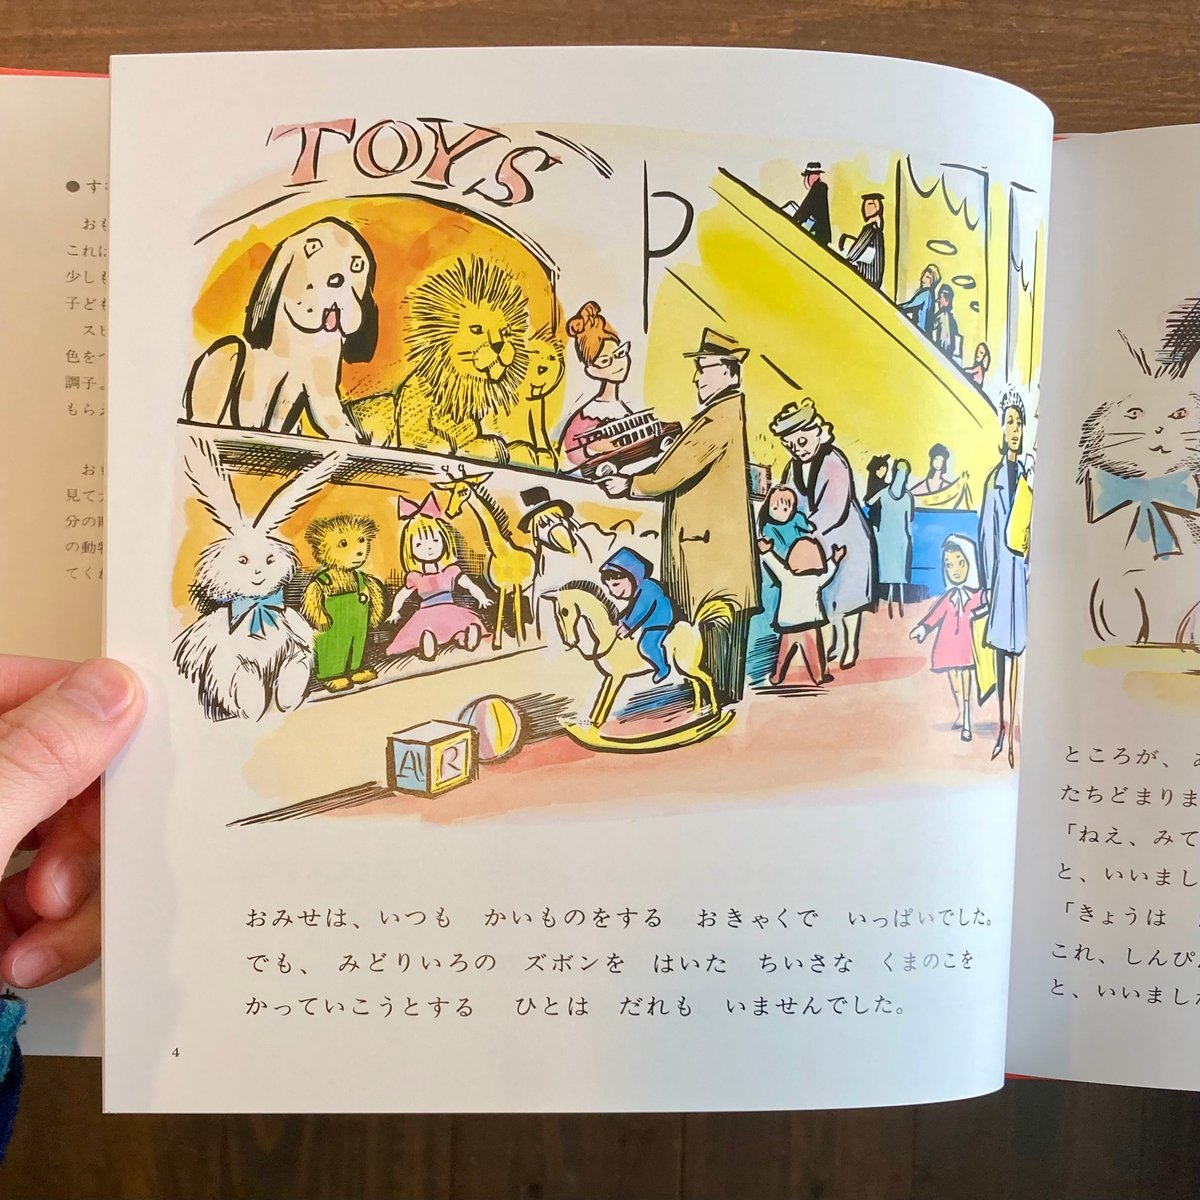 ● す
おも
これに
少しも
子ども
スピ
色をつ
調子。
もらえ
おも
見て
分の
の動物
てくれ
TOYS
A R
おみせは、いつも　かいものをする　おきゃくで　いっぱいでした。
でも、みどりいろの　ズボンを　はいた　ちいさな　くまのこを
かっていこうとする　ひとは　だれも　いませんでした。
4
ところが、
たちどまりま
「ねえ、みて
と、いいまし
「きょうは
これ、しんぴん
と、いいました